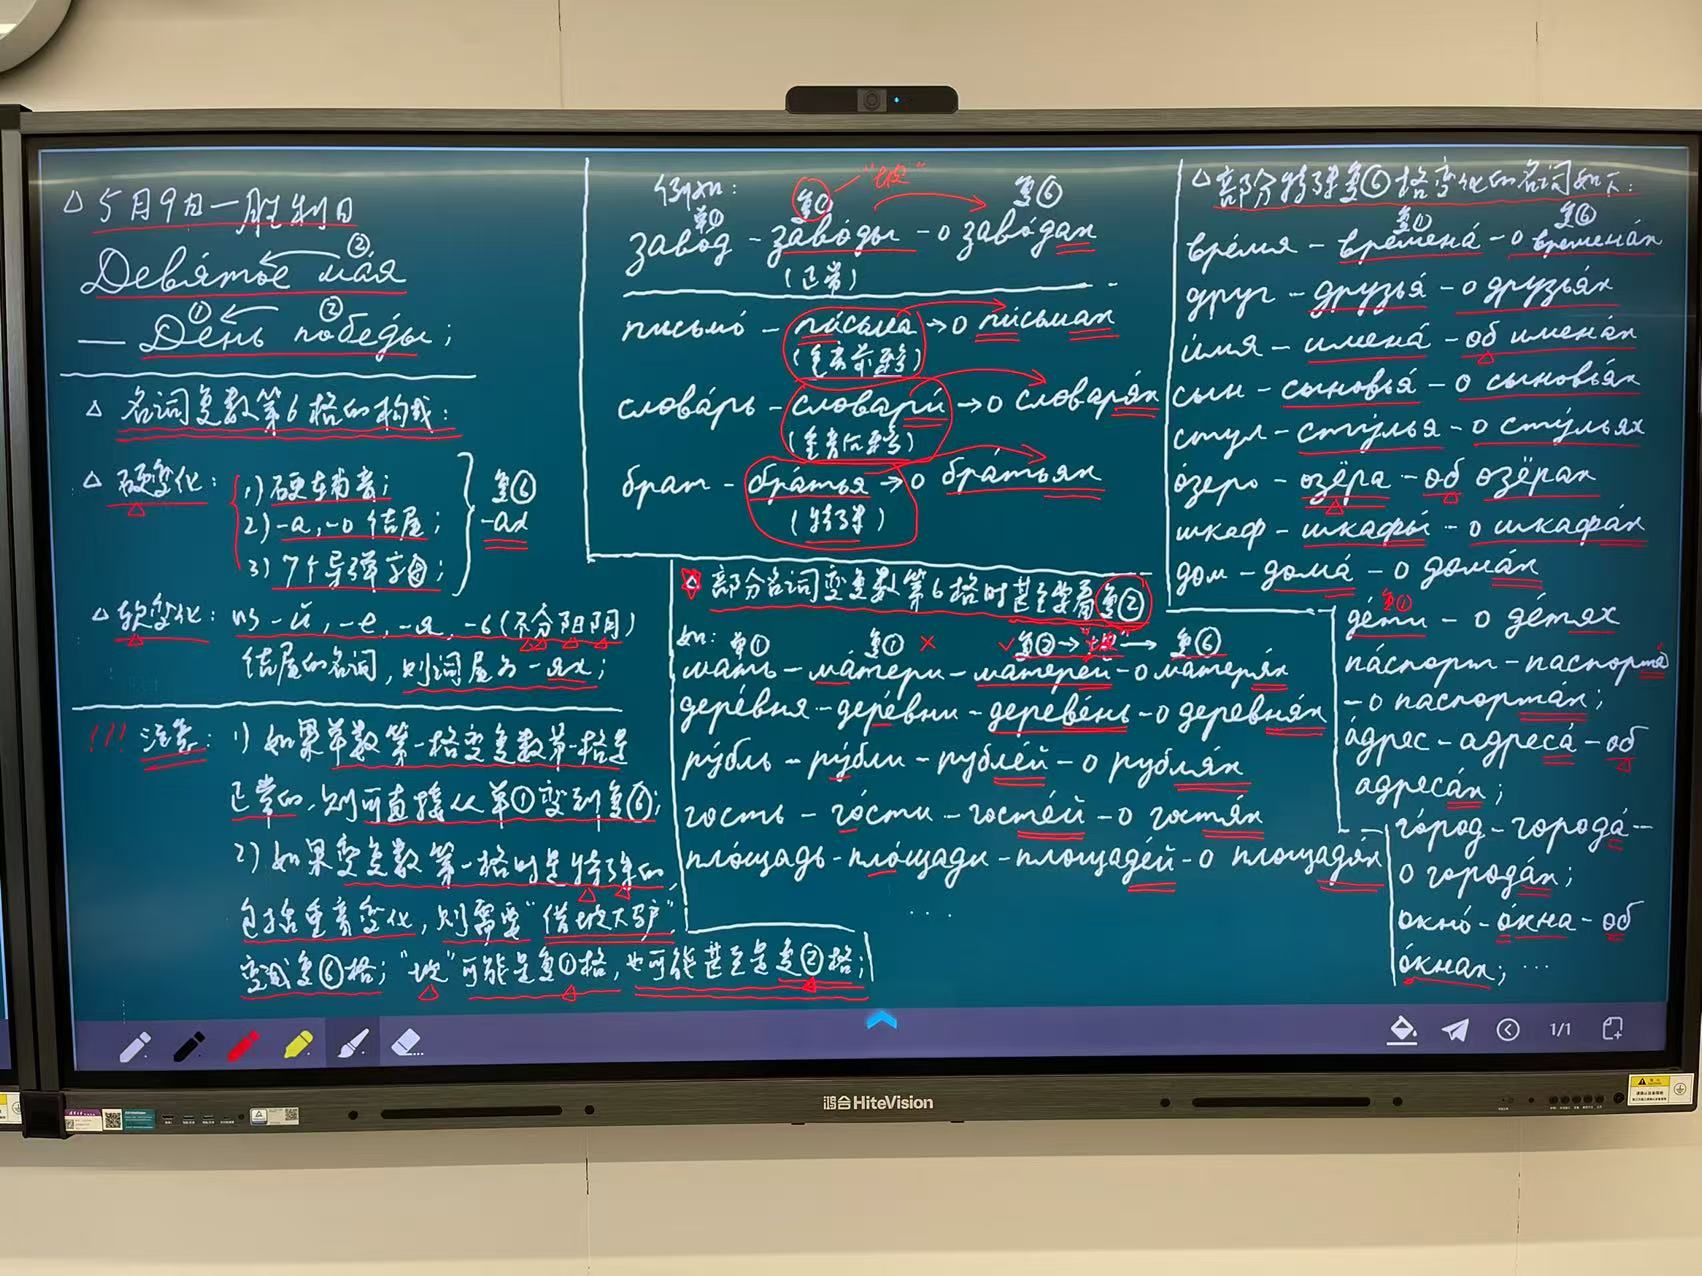 △ 5月9日—胜利日
② 
Девя́тое ма́я
① ②
— День побе́ды;
△ 名词复数第6格的构成:
△ 硬变化: 1) 硬辅音;
2) -а, -о 结尾;
3) 7个导弹字母;
复⑥
-ах
△ 软变化: 以 -й, -е, -я, -ь (不分阳阴)
结尾的名词, 则词尾为 -ях;
!!! 注意: 1) 如果单数第一格变复数第一格是
正常的, 则可直接从单①变到复⑥;
2) 如果变复数第一格时是特殊的,
包括重音变化, 则需要"借坡下驴"
变成复⑥格; "坡"可能是复①格, 也可能甚至是复②格;
例如:
单① 复① "坡" 复⑥
заво́д - заво́ды - о заво́дах
(正常)
письмо́ - пи́сьма → о пи́сьмах
(重音前移)
слова́рь - словари́ → о словаря́х
(重音后移)
брат - бра́тья → о бра́тьях
(特殊)
△ 部分名词变复数第6格时甚至要看复②
如: 单① 复① × ✓ 复② → "坡" → 复⑥
мать - ма́тери - матере́й - о матеря́х
дере́вня - дере́вни - дереве́нь - о деревня́х
ру́бль - ру́бли - рубле́й - о рубля́х
гость - го́сти - госте́й - о гостя́х
пло́щадь - пло́щади - площаде́й - о площадя́х
...
△ 部分特殊复⑥格变化的名词如下:
复① 复⑥
вре́мя - времена́ - о времена́х
друг - друзья́ - о друзья́х
и́мя - имена́ - об имена́х
сын - сыновья́ - о сыновья́х
стул - сту́лья - о сту́льях
о́зеро - озёра - об озёрах
шкаф - шкафы́ - о шкафа́х
дом - дома́ - о дома́х
复①
де́ти - о де́тях
па́спорт - паспорта́
- о паспорта́х;
а́дрес - адреса́ - об
адреса́х;
го́род - города́ -
о города́х;
окно́ - о́кна - об
о́кнах; ...
1/1
鸿合HiteVision